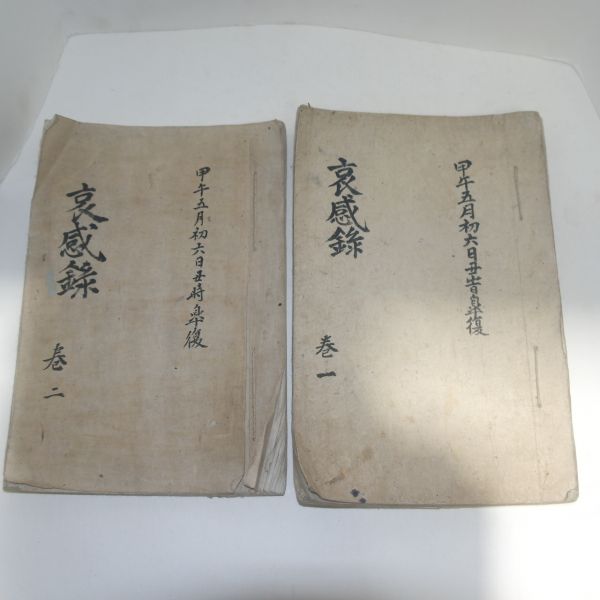 甲午五月初六日丑旹皐復
哀感錄
卷一
甲午五月初六日丑時皐復
哀感錄
卷二